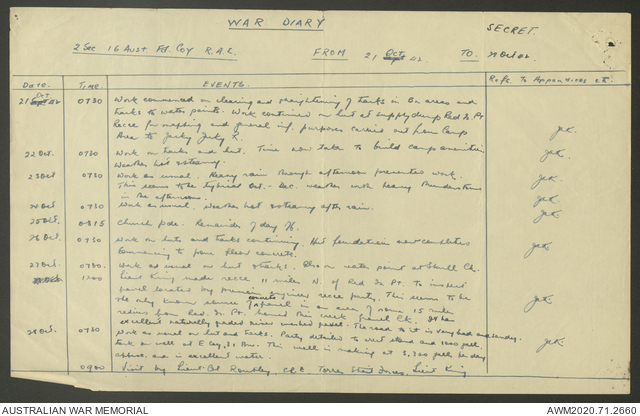 WAR DIARY
SECRET.
2 Sec 16 Aust Fd Coy R.A.E. FROM 21 Oct 42 TO
DATE. TIME EVENTS. Refs. to Appendices etc.
21 Oct 42 0730 Work commenced on clearing and straightening of tracks in Bn areas and
tracks to water points. Work continued on hut at supply dump Red Is. Pt.
Recce for mapping and general inf. purposes carried out from Camp
Area to Jacky Jacky R.
22 Oct. 0730 Work on tracks and hut. Time now taken to build camp amenities
Weather hot & steamy.
23 Oct 0730 Work as usual. Heavy rain through afternoon prevented work.
This seems to be typical Oct. - Dec. weather with heavy thunderstorms
in the afternoons.
24 Oct 0730 Work as usual. Weather hot & steamy after rain.
25 Oct. 0815 Church pde. Remainder of day
26 Oct. 0730 Work on huts and tracks continuing. Hut foundations near completion
Commencing to pour floor concrete.
27 Oct. 0730. Work as usual on hut & tracks. Also on water point at Skull Ck.
1200 Lieut King made recce 11 miles N. of Red Is. Pt. to inspect
gravel located by engineer recce party. This seems to be
the only known source of concrete gravel in an area of some 15 miles
radius from Red Is. Pt. Named this creek Gravel Ck. It has
excellent naturally graded river washed gravel. The road to it is very bad and sandy.
28 Oct. 0730 Work as usual on hut and tracks. Party detailed to erect stand and 1000 gall.
tank on well at E Coy, 31 Bn. This well is making at 3,700 galls per day
approx. and is excellent water.
0900 Visit by Lieut-Col CRE Torres Strait Force. Lieut King
AUSTRALIAN WAR MEMORIAL
AWM2020.71.2660